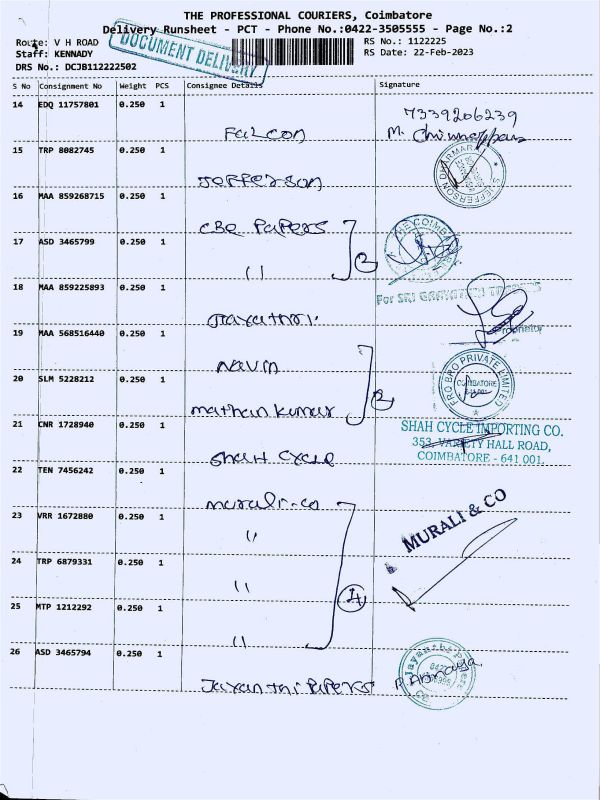 THE PROFESSIONAL COURIERS, Coimbatore
Delivery Runsheet - PCT - Phone No.:0422-3505555 - Page No.:2
Route: V H ROAD
RS No.: 1122225
Staff: KENNADY
RS Date: 22-Feb-2023
DRS No.: DCJB112222502
DOCUMENT DELIVERY
S No Consignment No Weight PCS Consignee Details Signature
14 EDQ 11757801 0.250 1
7339206239
Falcon
M.
15 TRP 8082745 0.250 1
Jefferson
16 MAA 859268715 0.250 1
CBE Papers
17 ASD 3465799 0.250 1
2
18 MAA 859225893 0.250 1
For SRI
Proprietor
19 MAA 568516440 0.250 1
Navin
20 SLM 5228212 0.250 1
PRO BRO PRIVATE LIMITED
COIMBATORE
2
mathan kumar
21 CNR 1728940 0.250 1
SHAH CYCLE IMPORTING CO.
353, VARIETY HALL ROAD,
COIMBATORE - 641 001.
Shah Cycle
22 TEN 7456242 0.250 1
murali-co
23 VRR 1672880 0.250 1
MURALI & CO
"
24 TRP 6879331 0.250 1
"
4
25 MTP 1212292 0.250 1
"
26 ASD 3465794 0.250 1
Jayanthi Papers